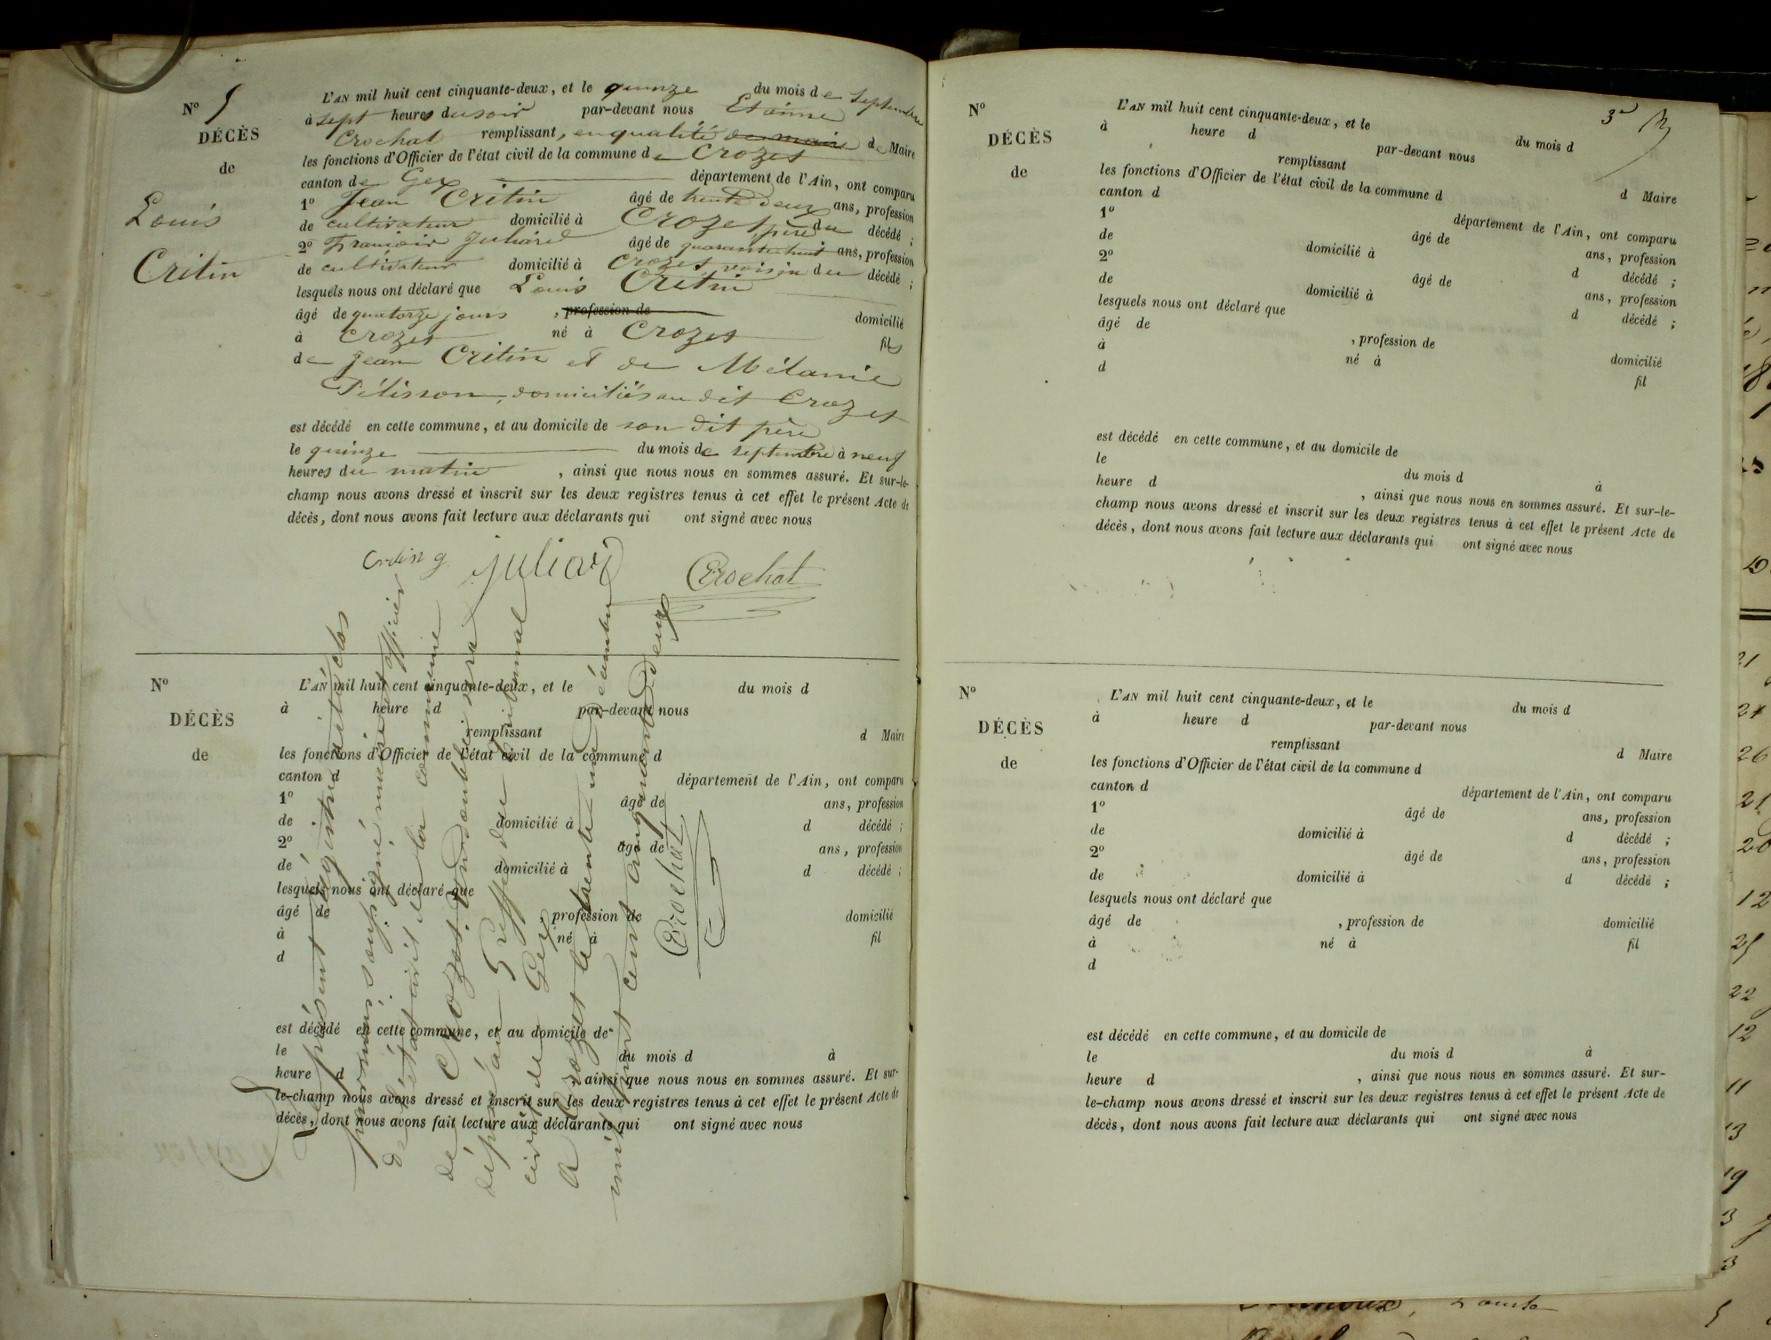 N° 5
DÉCÈS
de
Louis
Critin
L'AN mil huit cent cinquante-deux, et le quinze du mois de septembre
à sept heures du soir par-devant nous Etienne
Crochat remplissant, en qualité de maire de Maire
les fonctions d'Officier de l'état civil de la commune de Crozet
canton de Gex département de l'Ain, ont comparu
1° Jean Critin âgé de trente deux ans, profession
de cultivateur domicilié à Crozet, père du décédé ;
2° François Juliard âgé de quarante huit ans, profession
de cultivateur domicilié à Crozet, voisin du décédé ;
lesquels nous ont déclaré que Louis Critin
âgé de quatorze jours , profession de domicilié
à Crozet né à Crozet fils
de Jean Critin et de Mélanie
Pélisson, domiciliés au dit Crozet
est décédé en cette commune, et au domicile de son dit père
le quinze du mois de septembre à neuf
heures du matin , ainsi que nous nous en sommes assuré. Et sur-le-
champ nous avons dressé et inscrit sur les deux registres tenus à cet effet le présent Acte de
décès, dont nous avons fait lecture aux déclarants qui ont signé avec nous
juliard Crochat
N°
DÉCÈS
de
L'AN mil huit cent cinquante-deux, et le du mois d
à heure d par-devant nous
remplissant d Maire
les fonctions d'Officier de l'état civil de la commune d
canton d département de l'Ain, ont comparu
1° âgé de ans, profession
de domicilié à d décédé ;
2° âgé de ans, profession
de domicilié à d décédé ;
lesquels nous ont déclaré que
âgé de profession de domicilié
à né à fil
d
est décédé en cette commune, et au domicile de
le du mois d à
heure d , ainsi que nous nous en sommes assuré. Et sur-
le-champ nous avons dressé et inscrit sur les deux registres tenus à cet effet le présent Acte de
décès, dont nous avons fait lecture aux déclarants qui ont signé avec nous
Le présent registre a été clos
par nous soussigné maire et officier
de l'état civil de la commune
de Crozet, pour
déposé au Greffe du tribunal
civil de Gex
A Crozet le trente un décembre
mil huit cent cinquante deux
Crochat
3e
N°
DÉCÈS
de
L'AN mil huit cent cinquante-deux, et le du mois d
à heure d par-devant nous
remplissant d Maire
les fonctions d'Officier de l'état civil de la commune d
canton d département de l'Ain, ont comparu
1° âgé de ans, profession
de domicilié à d décédé ;
2° âgé de ans, profession
de domicilié à d décédé ;
lesquels nous ont déclaré que
âgé de , profession de domicilié
à né à fil
d
est décédé en cette commune, et au domicile de
le du mois d à
heure d , ainsi que nous nous en sommes assuré. Et sur-le-
champ nous avons dressé et inscrit sur les deux registres tenus à cet effet le présent Acte de
décès, dont nous avons fait lecture aux déclarants qui ont signé avec nous
N°
DÉCÈS
de
L'AN mil huit cent cinquante-deux, et le du mois d
à heure d par-devant nous
remplissant d Maire
les fonctions d'Officier de l'état civil de la commune d
canton d département de l'Ain, ont comparu
1° âgé de ans, profession
de domicilié à d décédé ;
2° âgé de ans, profession
de domicilié à d décédé ;
lesquels nous ont déclaré que
âgé de , profession de domicilié
à né à fil
d
est décédé en cette commune, et au domicile de
le du mois d à
heure d , ainsi que nous nous en sommes assuré. Et sur-
le-champ nous avons dressé et inscrit sur les deux registres tenus à cet effet le présent Acte de
décès, dont nous avons fait lecture aux déclarants qui ont signé avec nous
21
26
12
22
12
11
13
19
3
3